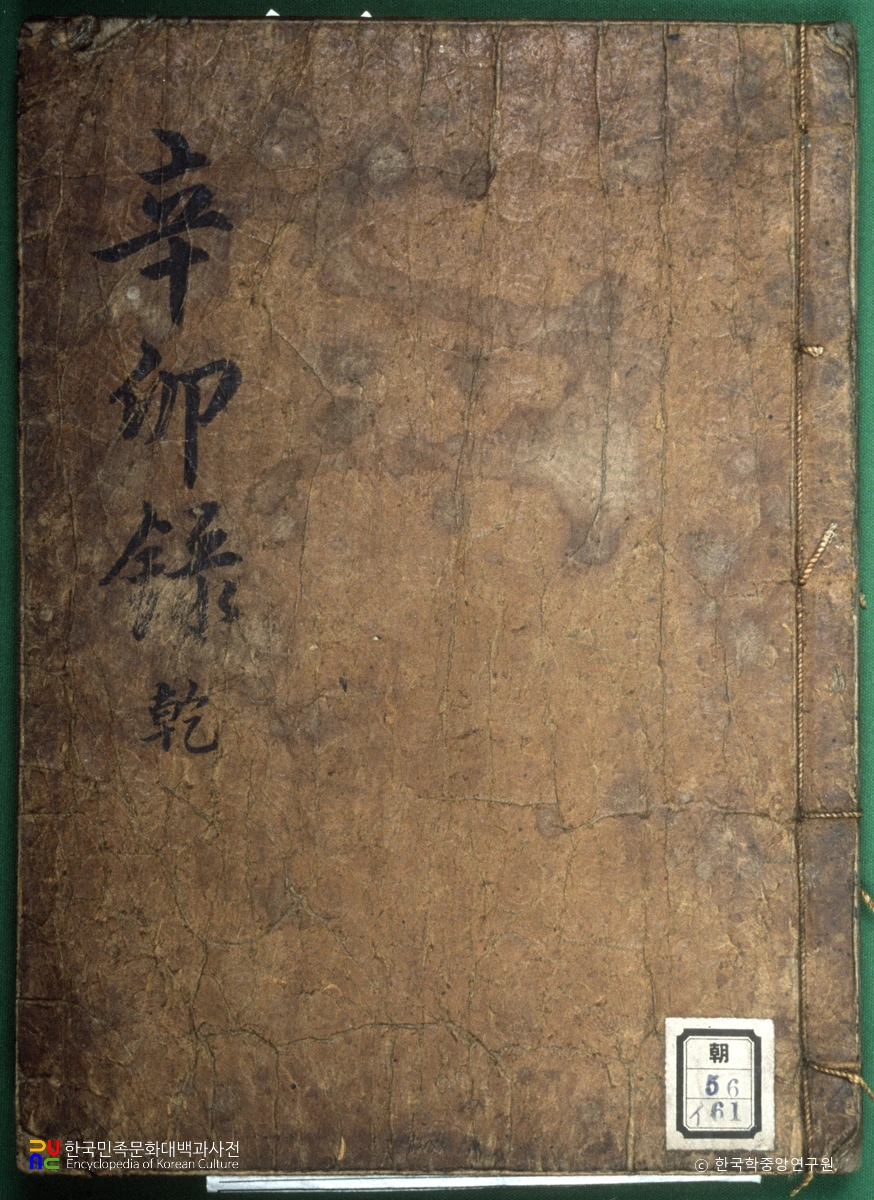 辛卯錄 乾
朝
56
イ61
한국민족문화대백과사전
Encyclopedia of Korean Culture
ⓒ 한국학중앙연구원